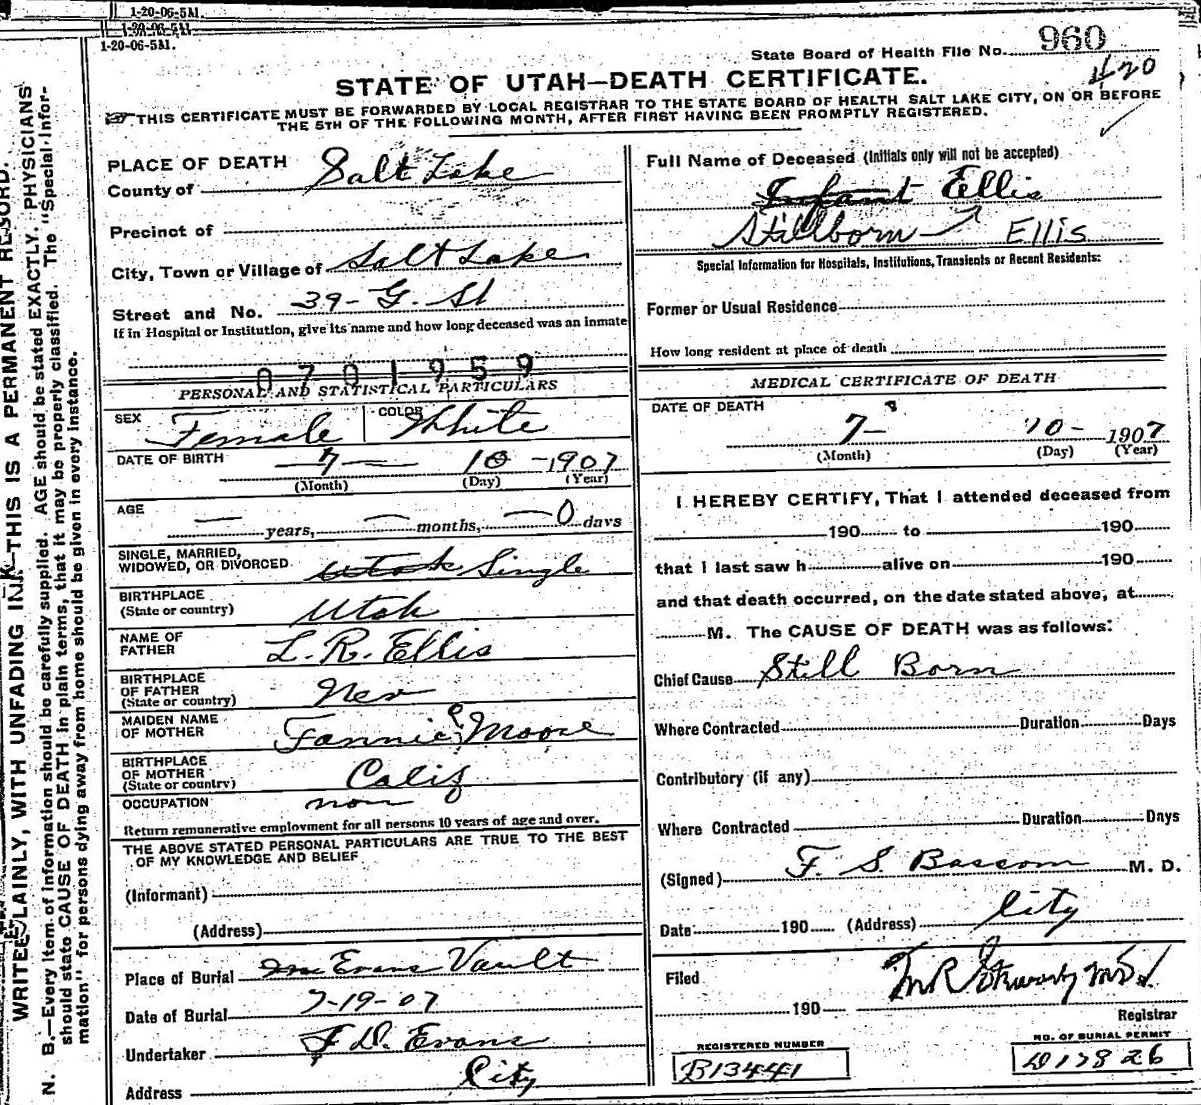 1-20-06-5M.
1-20-06-5M.
1-20-06-5M.
State Board of Health File No. 960
420
STATE OF UTAH—DEATH CERTIFICATE.
THIS CERTIFICATE MUST BE FORWARDED BY LOCAL REGISTRAR TO THE STATE BOARD OF HEALTH SALT LAKE CITY, ON OR BEFORE
THE 5TH OF THE FOLLOWING MONTH, AFTER FIRST HAVING BEEN PROMPTLY REGISTERED.
WRITE PLAINLY, WITH UNFADING INK—THIS IS A PERMANENT RECORD.
N. B.—Every item of information should be carefully supplied. AGE should be stated EXACTLY. PHYSICIANS
should state CAUSE OF DEATH in plain terms, that it may be properly classified. The "Special Infor-
mation" for persons dying away from home should be given in every instance.
PLACE OF DEATH
County of Salt Lake
Precinct of
City, Town or Village of Salt Lake
Street and No. 39- G. St
If in Hospital or Institution, give its name and how long deceased was an inmate
0701959
PERSONAL AND STATISTICAL PARTICULARS
SEX Female COLOR White
DATE OF BIRTH 7 — 10 -1907
(Month) (Day) (Year)
AGE — years, — months, —0 days
SINGLE, MARRIED,
WIDOWED, OR DIVORCED Utah Single
BIRTHPLACE
(State or country) Utah
NAME OF
FATHER L. R. Ellis
BIRTHPLACE
OF FATHER
(State or country) Nev
MAIDEN NAME
OF MOTHER Fannie Moore
BIRTHPLACE
OF MOTHER
(State or country) Calif
OCCUPATION non
Return remunerative employment for all persons 10 years of age and over.
THE ABOVE STATED PERSONAL PARTICULARS ARE TRUE TO THE BEST
OF MY KNOWLEDGE AND BELIEF
(Informant)
(Address)
Place of Burial Evans Vault
Date of Burial 7-19-07
Undertaker D. Evans
Address City
Full Name of Deceased (Initials only will not be accepted)
Infant Ellis
Stillborn Ellis
Special Information for Hospitals, Institutions, Transients or Recent Residents:
Former or Usual Residence
How long resident at place of death
MEDICAL CERTIFICATE OF DEATH
DATE OF DEATH
7- 10- 1907
(Month) (Day) (Year)
I HEREBY CERTIFY, That I attended deceased from
190 to 190
that I last saw h alive on 190
and that death occurred, on the date stated above, at
M. The CAUSE OF DEATH was as follows:
Chief Cause Still Born
Where Contracted Duration Days
Contributory (if any)
Where Contracted Duration Days
(Signed) F. S. Bascom M. D.
Date 190 (Address) City
Filed
190
Registrar
REGISTERED NUMBER
B13441
NO. OF BURIAL PERMIT
D17826